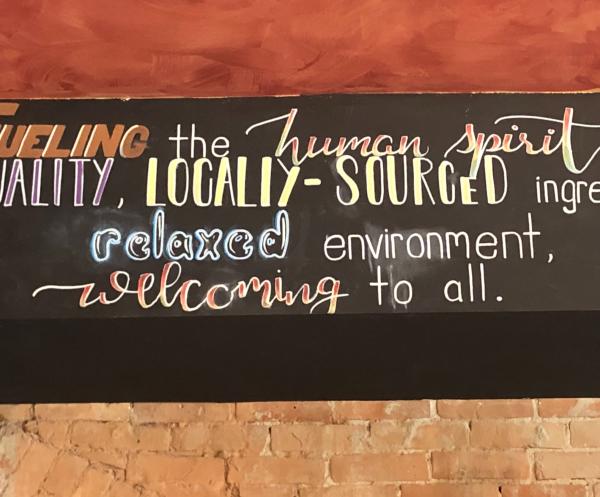 FUELING the human spirit
UALITY, LOCALLY-SOURCED ingre
relaxed environment,
welcoming to all.